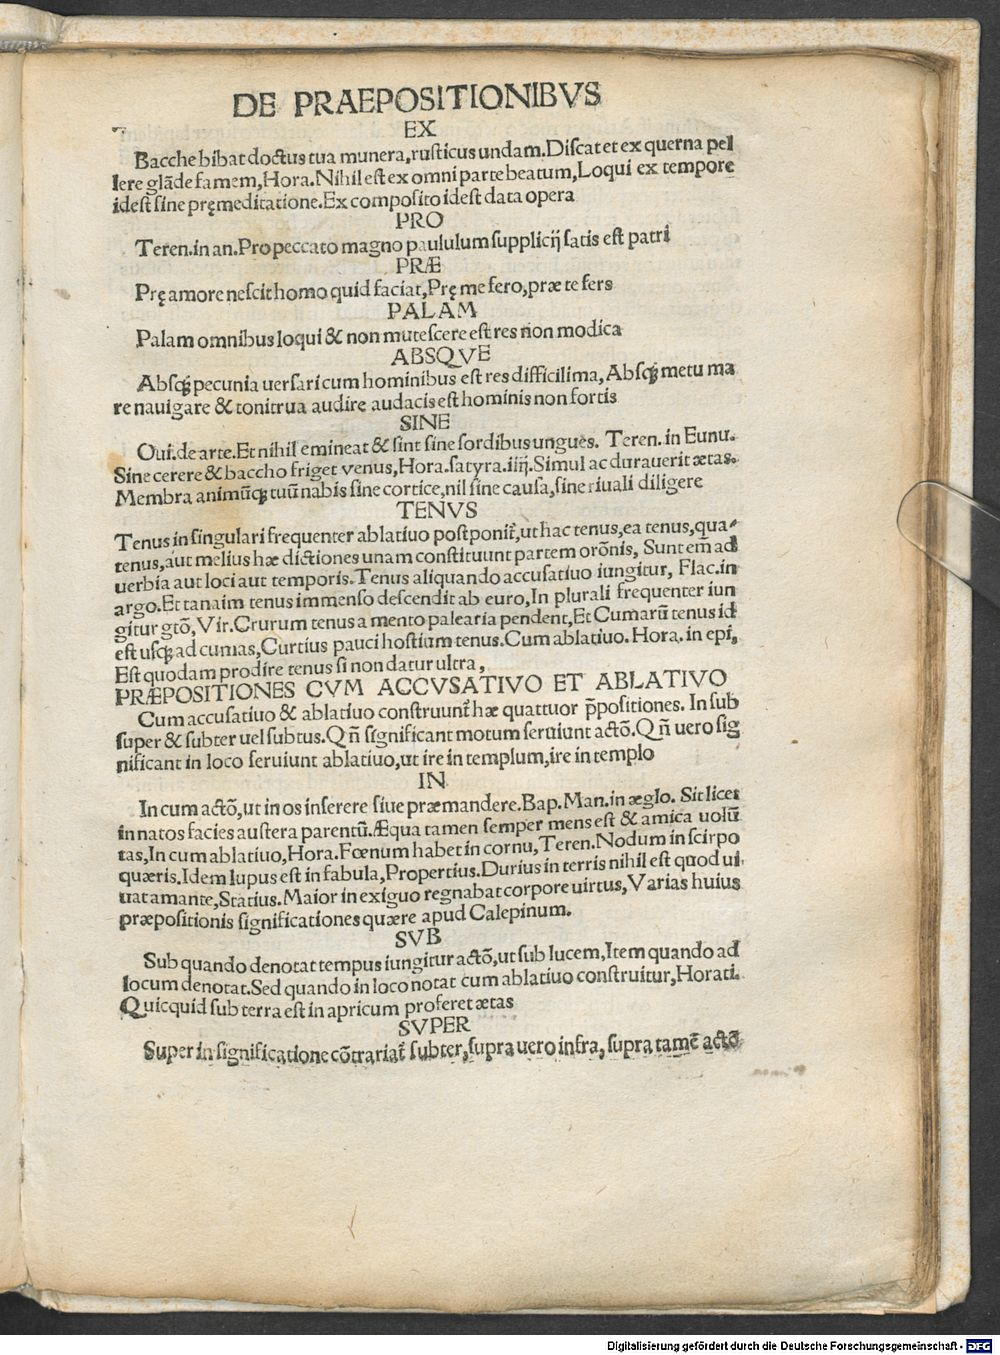 DE PRAEPOSITIONIBVS
EX
Bacche bibat doctus tua munera, rusticus undam. Discat et ex querna pel
lere glãde famem, Hora. Nihil est ex omni parte beatum, Loqui ex tempore
idest sine pręmeditatione. Ex composito idest data opera
PRO
Teren. in an. Pro peccato magno paululum supplicij satis est patri
PRÆ
Prę amore nescit homo quid faciat, Prę me fero, præ te fers
PALAM
Palam omnibus loqui & non mutescere est res non modica
ABSQVE
Absqꝫ pecunia uersari cum hominibus est res difficilima, Absqꝫ metu ma
re nauigare & tonitrua audire audacis est hominis non fortis
SINE
Oui. de arte. Et nihil emineat & sint sine sordibus ungues. Teren. in Eunu.
Sine cerere & baccho friget venus, Hora. satyra. iiij. Simul ac durauerit ætas.
Membra animũqꝫ tuũ nabis sine cortice, nil sine causa, sine riuali diligere
TENVS
Tenus in singulari frequenter ablatiuo postponit̃, ut hac tenus, ea tenus, qua
tenus, aut melius hæ dictiones unam constituunt partem orõnis, Sunt em̃ ad
uerbia aut loci aut temporis. Tenus aliquando accusatiuo iungitur, Flac. in
argo. Et tanaim tenus immenso descendit ab euro, In plurali frequenter iun
gitur gtõ, Vir. Crurum tenus a mento palearia pendent, Et Cumarũ tenus id
est usqꝫ ad cumas, Curtius pauci hostium tenus. Cum ablatiuo. Hora. in epi,
Est quodam prodire tenus si non datur ultra,
PRÆPOSITIONES CVM ACCVSATIVO ET ABLATIVO
Cum accusatiuo & ablatiuo construunt̃ hæ quattuor p̃positiones. In sub
super & subter uel subtus. Qñ significant motum seruiunt actõ. Qñ uero sig
nificant in loco seruiunt ablatiuo, ut ire in templum, ire in templo
IN
In cum actõ, ut in os inserere siue præmandere. Bap. Man. in æglo. Sit licet
in natos facies austera parentũ. Æqua tamen semper mens est & amica uolũ
tas, In cum ablatiuo, Hora. Fœnum habet in cornu, Teren. Nodum in scirpo
quæris. Idem lupus est in fabula, Propertius. Durius in terris nihil est quod ui
uat amante, Statius. Maior in exiguo regnabat corpore uirtus, Varias huius
præpositionis significationes quære apud Calepinum.
SVB
Sub quando denotat tempus iungitur actõ, ut sub lucem, Item quando ad
locum denotat. Sed quando in loco notat cum ablatiuo construitur, Horati.
Quicquid sub terra est in apricum proferet ætas
SVPER
Super in significatione cõtrariat̃ subter, supra uero infra, supra tamẽ actõ
Digitalisierung gefördert durch die Deutsche Forschungsgemeinschaft - DFG